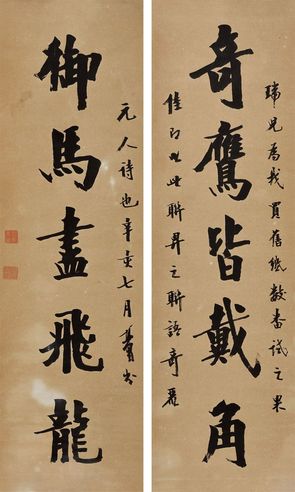 瑞兒為我買舊紙數番試之果
奇鷹皆戴角
佳即以此聯畀之聯語奇麗
元人詩也辛亥七月
御馬盡飛龍